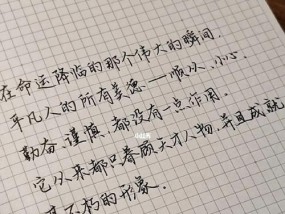 在命运降临的那个伟大的瞬间.
平凡人的所有美德——顺从、小心、
勤奋、谨慎,都没有一点作用.
它从来都只眷顾天才人物,并且成就
不朽的形象.
小红书